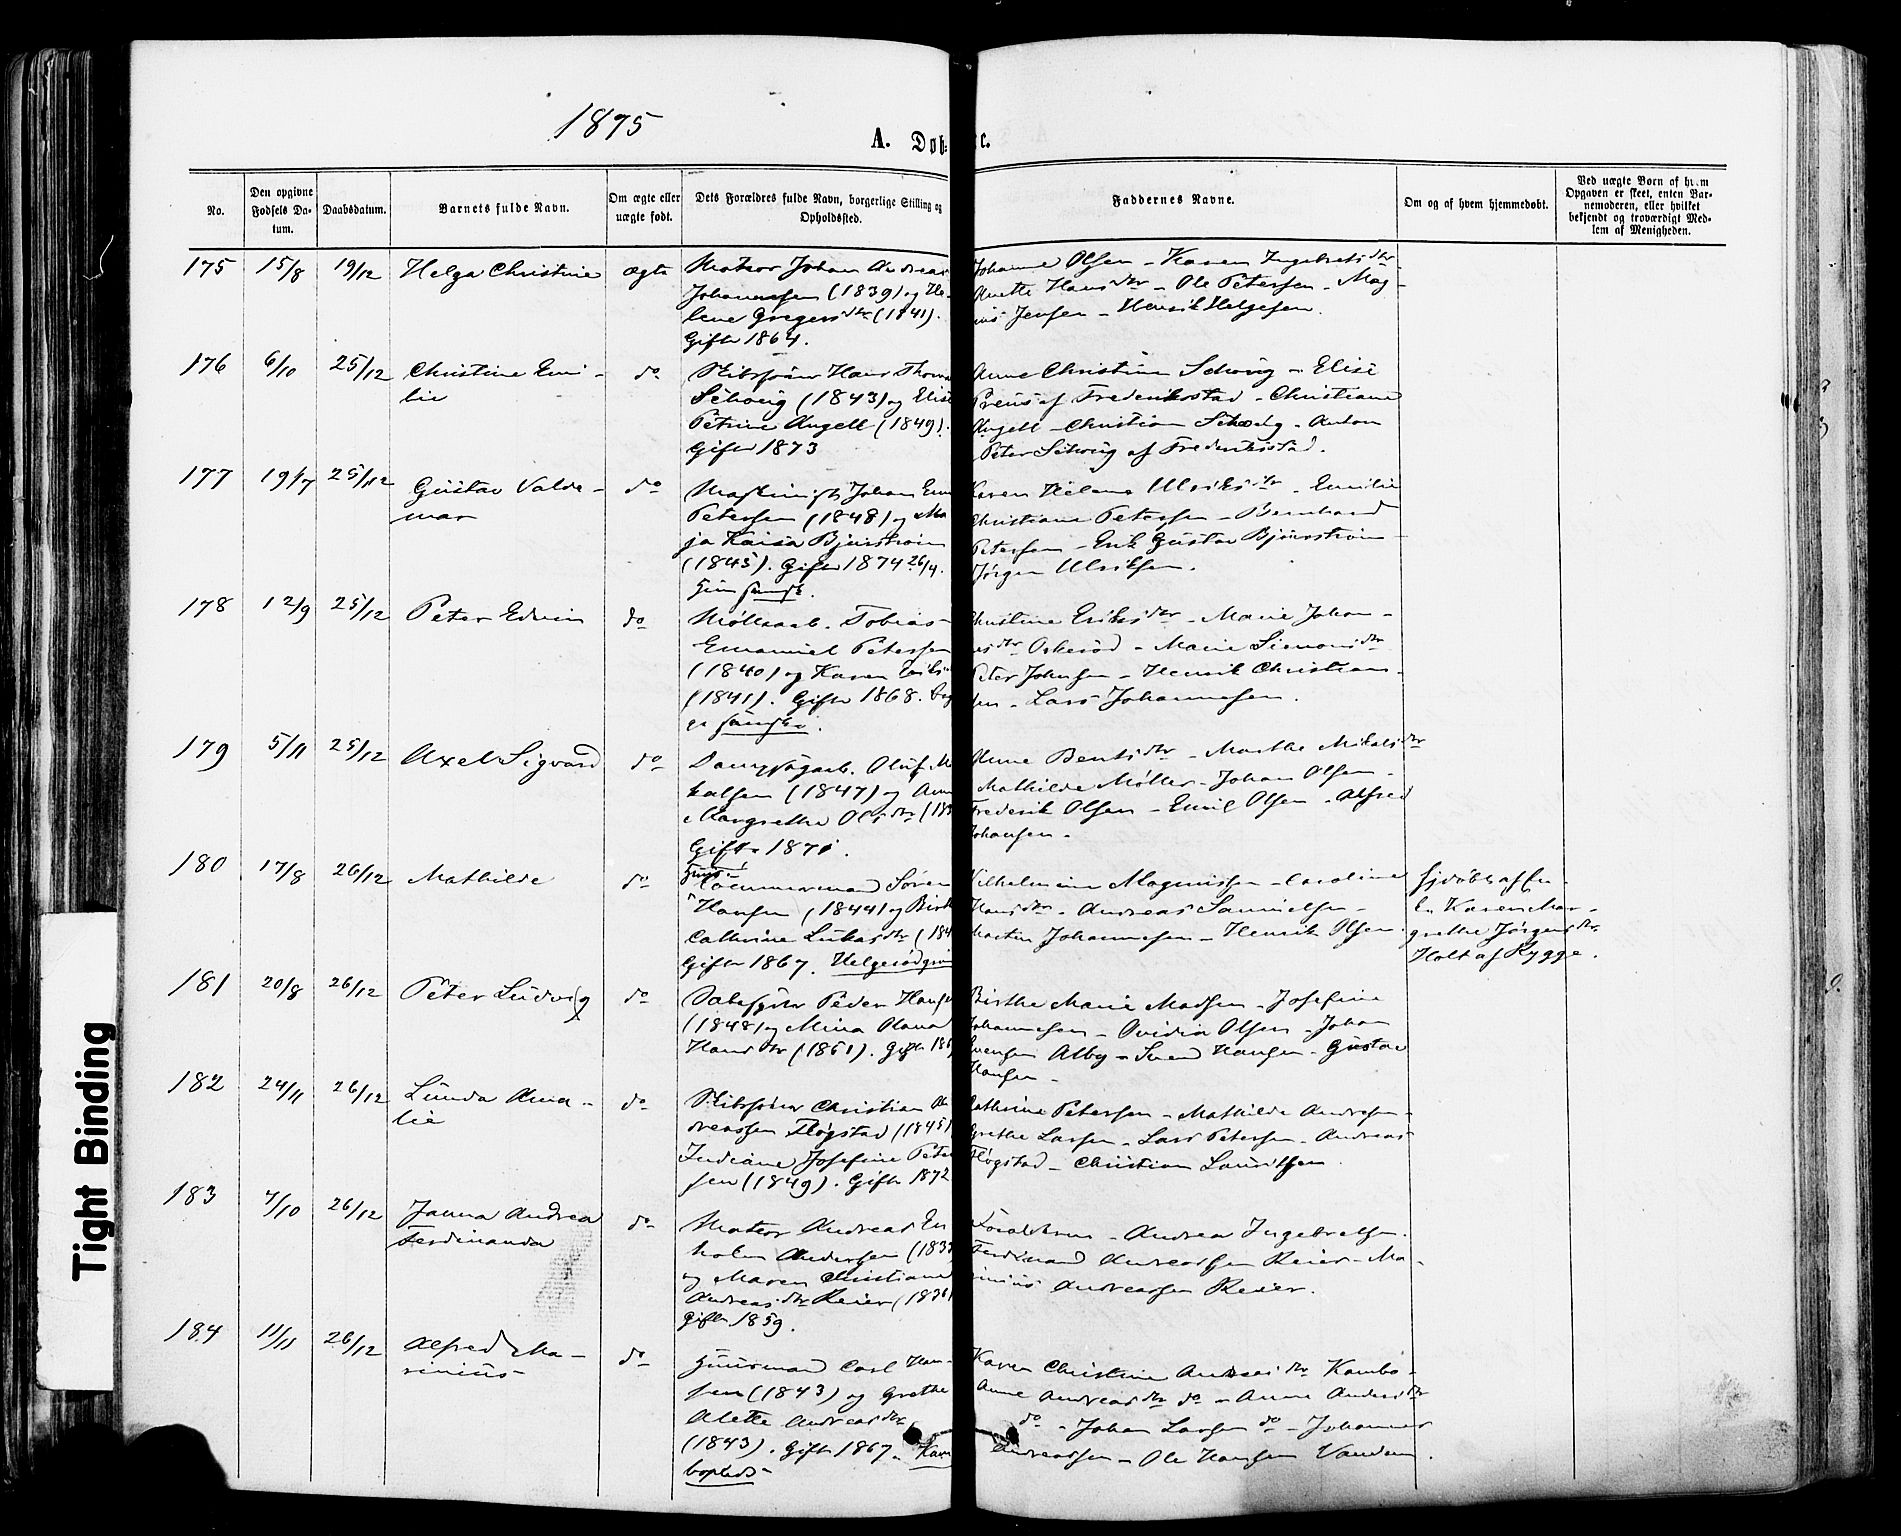 1875
A. Døb-
e.
No.
Den opgivne Fødsels Da-tum.
Daabsdatum.
Barnets fulde Navn.
Om ægte eller uægte født.
Dets Forældres fulde Navn, borgerlige Stilling og Opholdssted.
Faddernes Navne.
Om og af hvem hjemmedøbt.
Ved uægte Børn af hvem Opgaven er skeet, enten Bar-nemoderen, eller hvilket bekjendt og troværdigt Med-lem af Menigheden.
175 15/8 19/12 Helga Christine ægte
Matros Johan Andreas
Johannessen (1839) og He-
lene Gregersdtr (1841).
Gift 1864.
Johanne Olsen - Karen Ingebretsdtr -
Anette Hansdtr - Ole Petersen - Mag-
nus Jensen - Henrik Helgesen.
176 6/10 25/12 Christine Emi-
lie
do
Skibsfører Hans Thoma
Schøug (1843) og Elise
Petrine Angell (1849).
Gift 1873
Anne Christine Schøug - Elise
Preus af Frederikstad - Christiane
Angell - Christian Schøug - Anton
Peter Schøug af Frederikstad.
177 19/7 25/12 Gustav Valde-
mar
do
Maskinist Johan Em
Petersen (1848) og Ma
ja Kaisa Bjurstrøm
(1845). Gift 1874 26/4.
Hun svensk.
Karen Helene Ulriksdtr - Emilie
Christiane Petersen - Bernhard
Petersen - Erik Gustav Bjurstrøm -
Jørgen Ulriksen.
178 12/9 25/12 Peter Edvin
do
Møllearb. Tobias
Emanuel Petersen
(1840) og Karen Eriks
(1841). Gift 1868. Beg
ge svenske.
Christine Eriksdtr - Marie Johan-
nsdtr Oskerød - Marie Simonsdtr
Peter Johnsen - Henrik Christian-
sen - Lars Johannesen.
179 5/11 25/12 Axel Sigvard
do
Dampsagarb. Oluf Mi
kalsen (1847) og Anne
Margrethe Olsdtr (18
Gift 1871.
Anne Bentsdtr - Marthe Mikalsdtr
Mathilde Møller - Johan Olsen -
Frederik Olsen - Emil Olsen - Alfred
Johansen -
180 17/8 26/12 Mathilde
do
Tømmermand Søren
Hansen (1844) og Birt
Cathrine Lukasdtr (184
Gift 1867. Helgerødgrin
Vilhelmine Magnussen - Caroline
Hansdtr - Andreas Samuelsen -
Martin Johannesen - Henrik Olsen.
Hjdøbt af En-
ke Karen Mar-
grethe Jørgensdtr
Holt af Rygge.
181 20/8 26/12 Peter Ludvig
do
Peder Hansen
(1848) og Mina Olava
Hansdtr (1851). Gift 186
Birthe Marie Madsen - Josefine
Johannesen - Ovidia Olsen - Johan
Svensen Alby - Svend Hansen - Gustav
Hansen -
182 24/11 26/12 Lunda Ama-
lie
do
Skibsfører Christian An
dreassen Fløgstad (1845)
Indiane Josefine Peter
sen (1849). Gift 1872
Cathrine Petersen - Mathilde Andresen -
Grethe Larsen - Lars Petersen - Andreas
Fløgstad - Christian Lauritsen.
183 7/10 26/12 Janna Andrea
Ferdinanda
do
Matros Andreas En
holm Andersen (183
og Maren Christiane
Andreasdtr Reier (1836)
Gift 1859.
Forældrene - Andrea Ingebretsen.
Ferdinand Andreassen Reier - Ma-
rinius Andreassen Reier.
184 11/11 26/12 Alfred Ma-
rinius
do
Huusmand Carl Han-
sen (1843) og Grethe
Alette Andreasdtr
(1843). Gift 1867. Kam
bopleds
Karen Christine Andreasdtr Kambo -
Anne Andreasdtr do - Anne Andersdtr
do - Johan Larsen do - Johannes
Andreassen - Ole Hansen Vanden.
Tight Binding